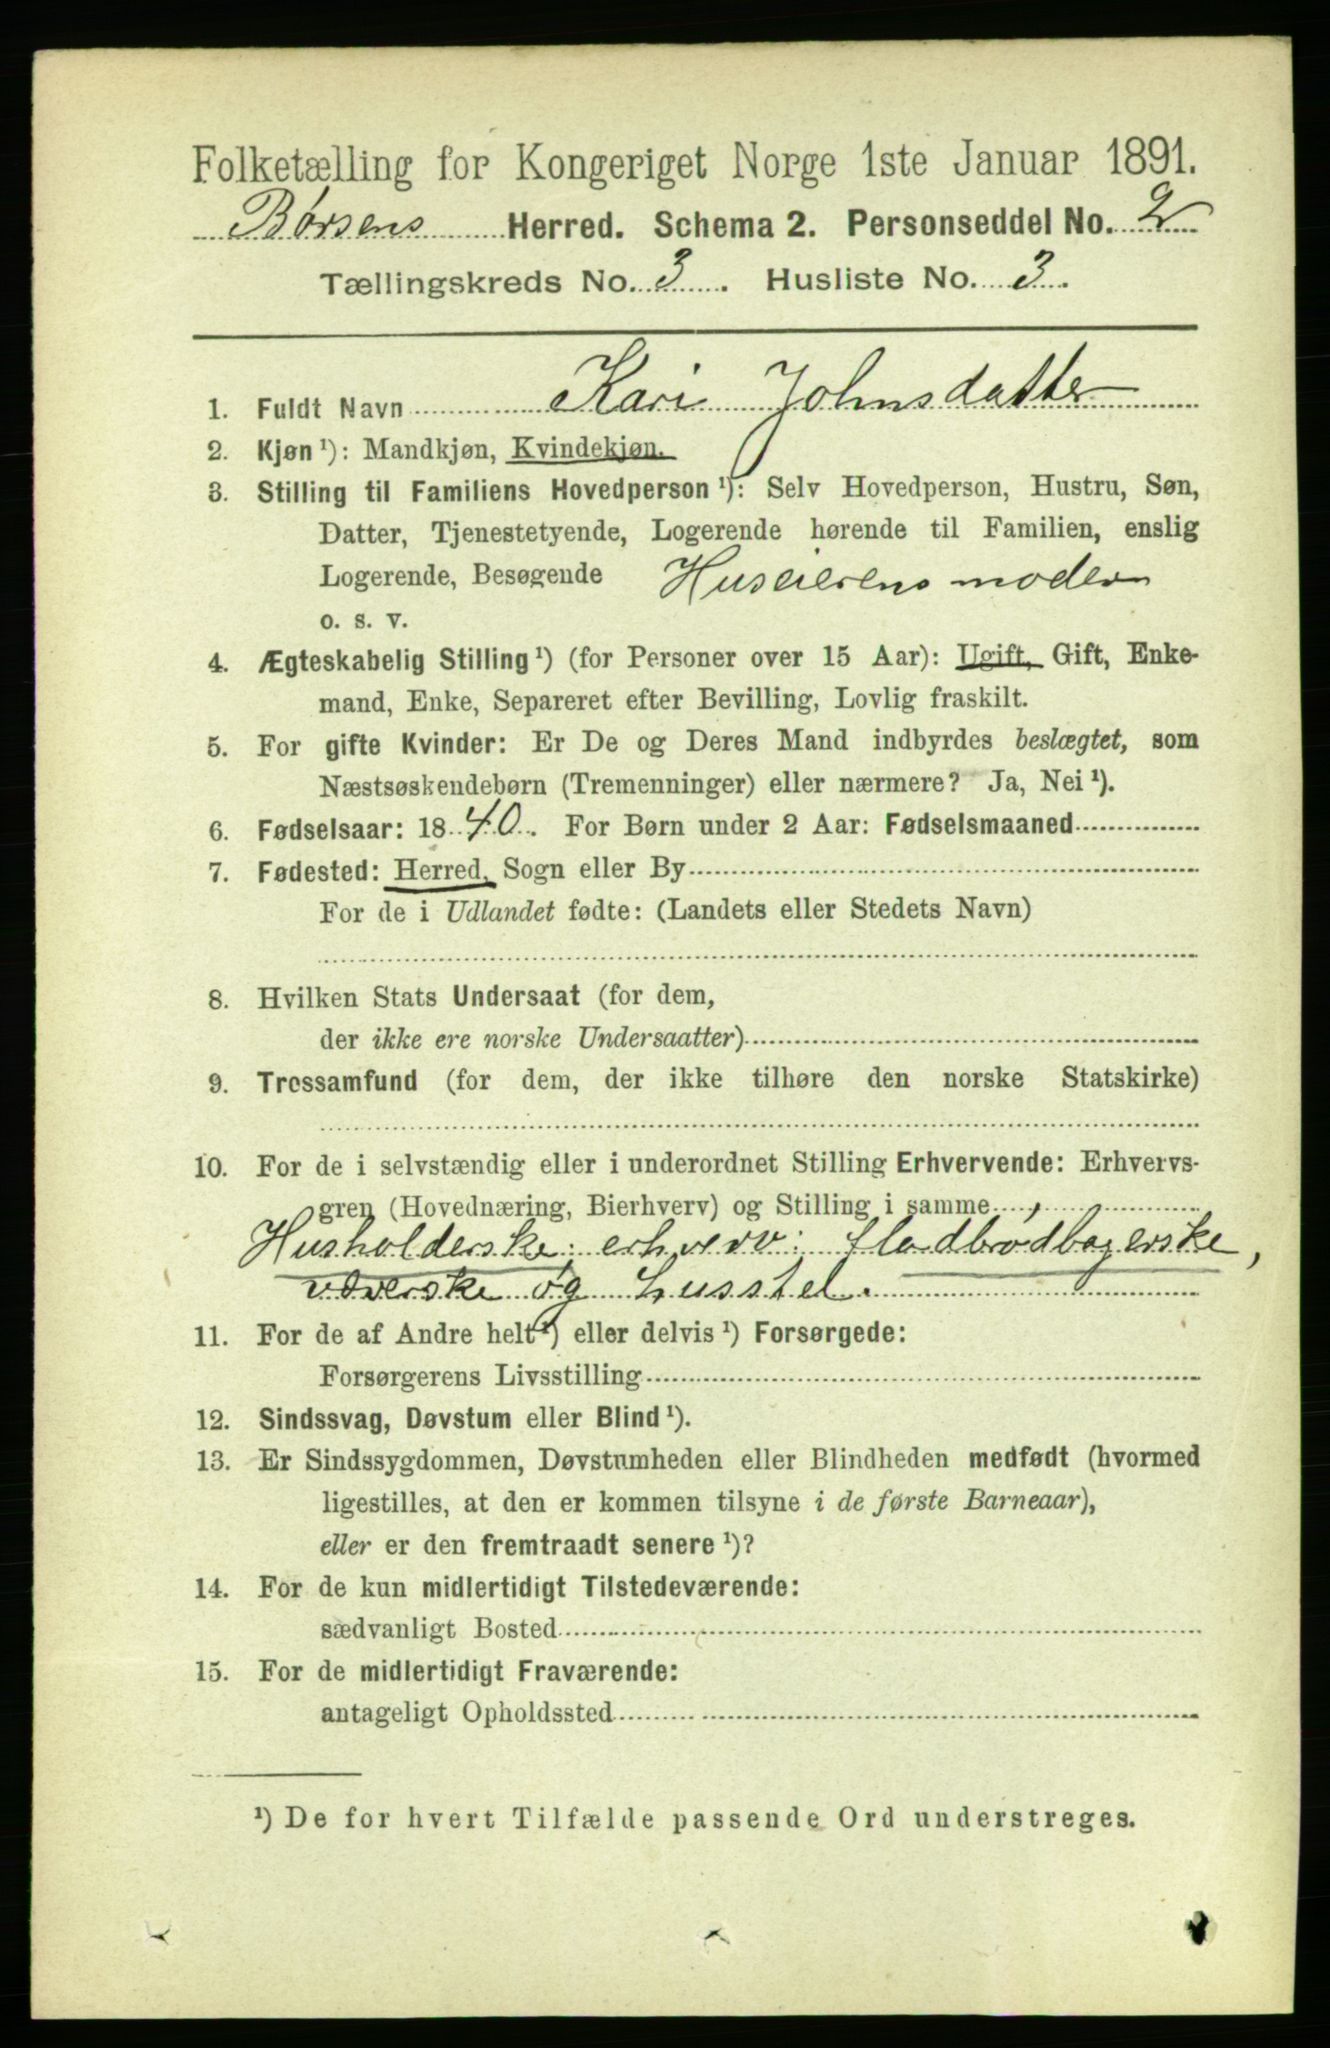 Folketælling for Kongeriget Norge 1ste Januar 1891.
Børsens Herred. Schema 2. Personseddel No. 2
Tællingskreds No. 3. Husliste No. 3.
1. Fuldt Navn Kari Johnsdatter
2. Kjøn ¹): Mandkjøn, Kvindekjøn.
3. Stilling til Familiens Hovedperson ¹): Selv Hovedperson, Hustru, Søn,
Datter, Tjenestetyende, Logerende hørende til Familien, enslig
Logerende, Besøgende Huseierens moder
o. s. v.
4. Ægteskabelig Stilling ¹) (for Personer over 15 Aar): Ugift, Gift, Enke-
mand, Enke, Separeret efter Bevilling, Lovlig fraskilt.
5. For gifte Kvinder: Er De og Deres Mand indbyrdes beslægtet, som
Næstsøskendebørn (Tremenninger) eller nærmere? Ja, Nei ¹).
6. Fødselsaar: 1840. For Børn under 2 Aar: Fødselsmaaned
7. Fødested: Herred, Sogn eller By
For de i Udlandet fødte: (Landets eller Stedets Navn)
8. Hvilken Stats Undersaat (for dem,
der ikke ere norske Undersaatter)
9. Trossamfund (for dem, der ikke tilhøre den norske Statskirke)
10. For de i selvstændig eller i underordnet Stilling Erhvervende: Erhvervs-
gren (Hovednæring, Bierhverv) og Stilling i samme
Husholderske: erhverv: fladbrødbagerske,
væverske og husstel.
11. For de af Andre helt ¹) eller delvis ¹) Forsørgede:
Forsørgerens Livsstilling
12. Sindssvag, Døvstum eller Blind ¹).
13. Er Sindssygdommen, Døvstumheden eller Blindheden medfødt (hvormed
ligestilles, at den er kommen tilsyne i de første Barneaar),
eller er den fremtraadt senere ¹)?
14. For de kun midlertidigt Tilstedeværende:
sædvanligt Bosted
15. For de midlertidigt Fraværende:
antageligt Opholdssted
¹) De for hvert Tilfælde passende Ord understreges.